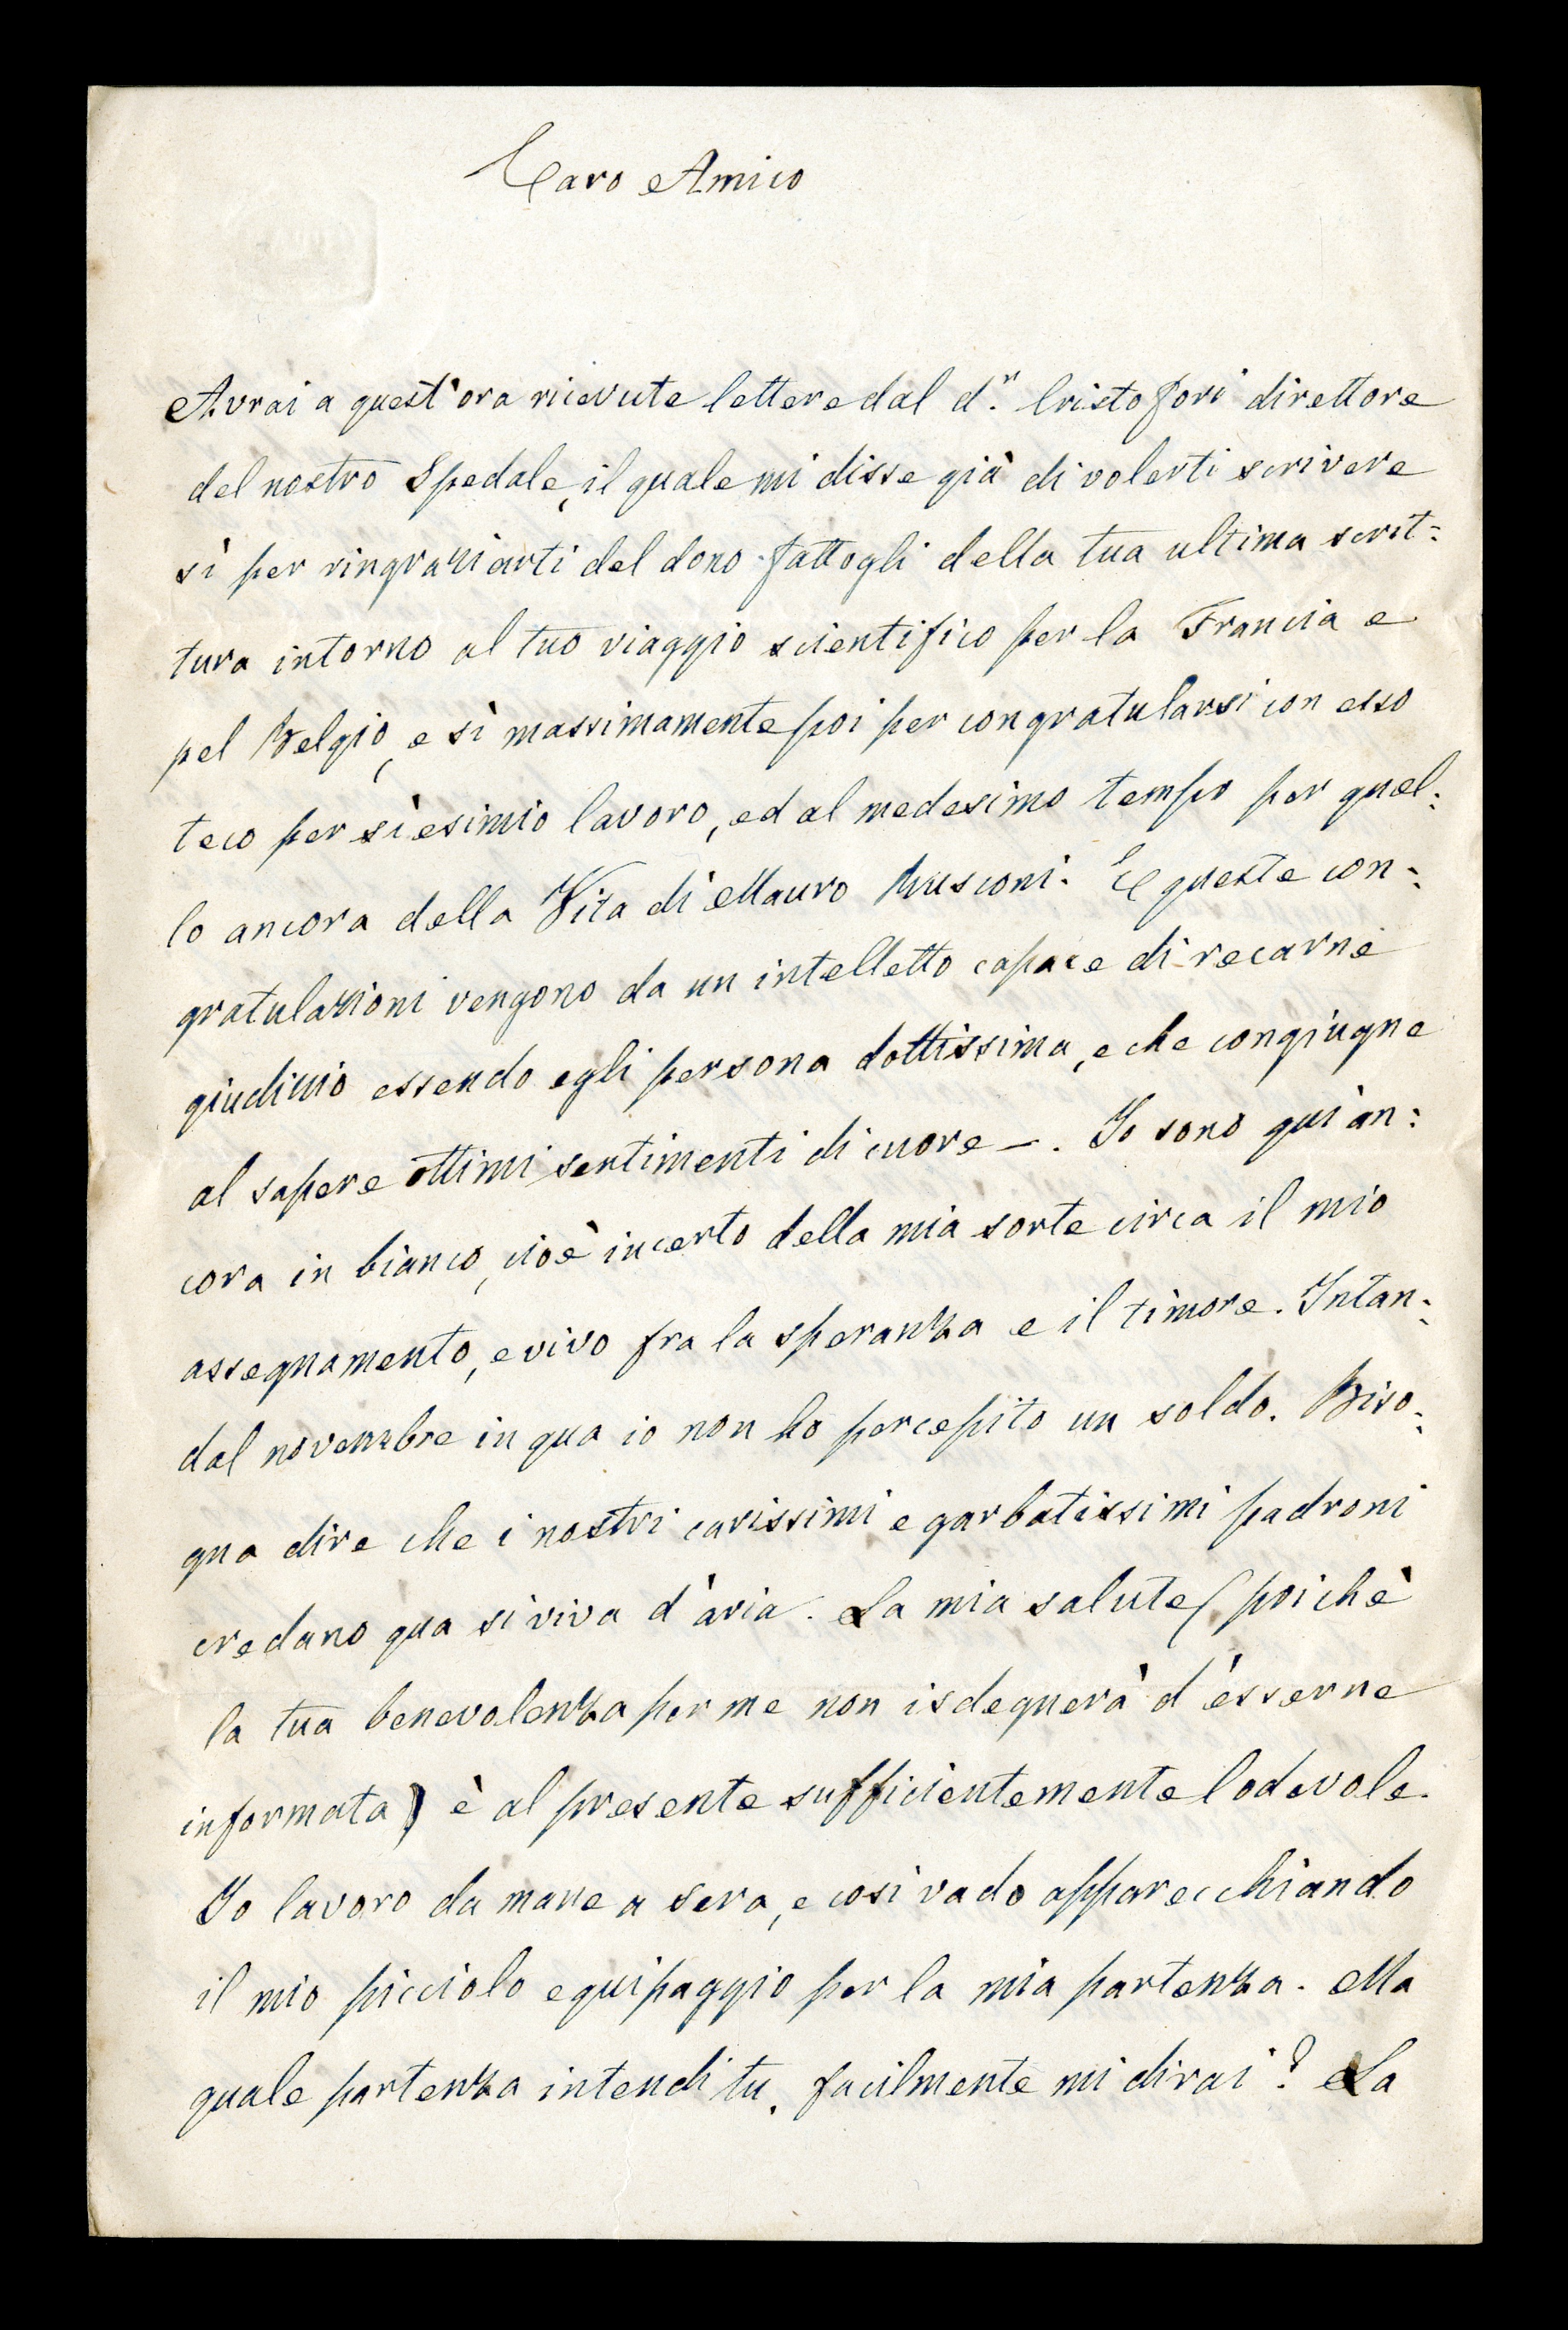 Caro Amico
Avrai a quest'ora ricevute lettere dal d.r Cristofori direttore
del nostro Spedale, il quale mi disse già di volerti scrivere
sì per ringraziarti del dono fattogli della tua ultima scrit:
tura intorno al tuo viaggio scientifico per la Francia e
pel Belgio, e sì massimamente poi per congratularsi con esso
teco per sì esimio lavoro, ed al medesimo tempo per quel:
lo ancora della Vita di Mauro Rusconi. E queste con:
gratulazioni vengono da un intelletto capace di recarne
giudizio essendo egli persona dottissima, e che congiugne
al sapere ottimi sentimenti di cuore –. Io sono qui an:
cora in bianco, cioè incerto della mia sorte circa il mio
assegnamento, e vivo fra la speranza e il timore. Intan:
dal novembre in qua io non ho percepito un soldo. Biso:
gna dire che i nostri carissimi e garbatissimi padroni
credano qua si viva d'aria. La mia salute (poichè
la tua benevolenza per me non isdegnerà d'esserne
informata) è al presente sufficientemente lodevole.
Io lavoro da mane a sera, e così vado apparecchiando
il mio picciolo equipaggio per la mia partenza. Ma
quale partenza intendi tu, facilmente mi dirai? La